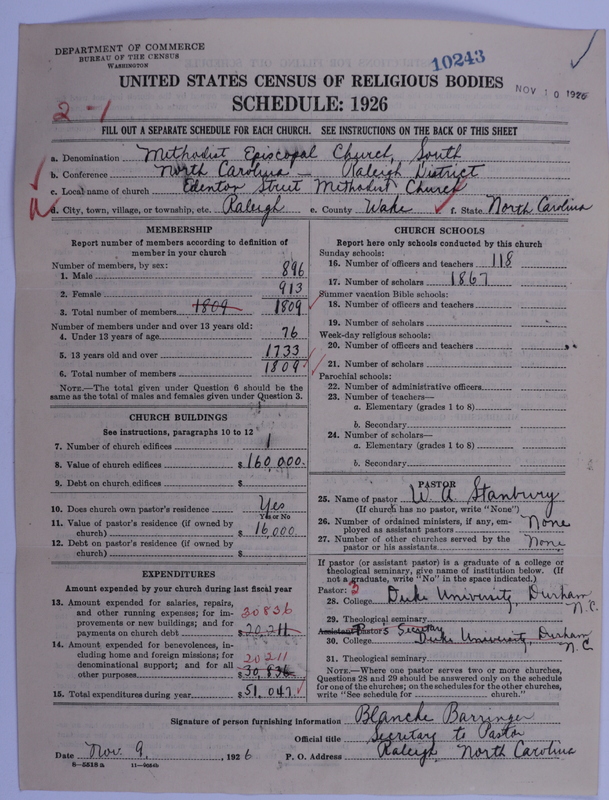 DEPARTMENT OF COMMERCE
BUREAU OF THE CENSUS
WASHINGTON
10243
NOV 10 1926
UNITED STATES CENSUS OF RELIGIOUS BODIES
2-1
SCHEDULE: 1926
FILL OUT A SEPARATE SCHEDULE FOR EACH CHURCH. SEE INSTRUCTIONS ON THE BACK OF THIS SHEET
a. Denomination Methodist Episcopal Church, South
b. Conference North Carolina — Raleigh District
c. Local name of church Edenton Street Methodist Church
d. City, town, village, or township, etc. Raleigh e. County Wake f. State North Carolina
MEMBERSHIP
Report number of members according to definition of
member in your church
Number of members, by sex:
1. Male 896
2. Female 913
3. Total number of members 1809 1809
Number of members under and over 13 years old:
4. Under 13 years of age 76
5. 13 years old and over 1733
6. Total number of members 1809
NOTE.—The total given under Question 6 should be
same as the total of males and females given under Question 3.
CHURCH BUILDINGS
See instructions, paragraphs 10 to 12
7. Number of church edifices 1
8. Value of church edifices $160,000.
9. Debt on church edifices $
10. Does church own pastor's residence Yes
Yes or No
11. Value of pastor's residence (if owned by
church) $ 16,000
12. Debt on pastor's residence (if owned by
church) $
EXPENDITURES
Amount expended by your church during last fiscal year
13. Amount expended for salaries, repairs,
and other running expenses; for im-
provements or new buildings; and for
payments on church debt 30836 $20,211.
14. Amount expended for benevolences, in-
cluding home and foreign missions; for
denominational support; and for all
other purposes 20211 $30,836.
15. Total expenditures during year $51,047.
CHURCH SCHOOLS
Report here only schools conducted by this church
Sunday schools:
16. Number of officers and teachers 118
17. Number of scholars 1867
Summer vacation Bible schools:
18. Number of officers and teachers
19. Number of scholars
Week-day religious schools:
20. Number of officers and teachers
21. Number of scholars
Parochial schools:
22. Number of administrative officers
23. Number of teachers—
a. Elementary (grades 1 to 8)
b. Secondary
24. Number of scholars—
a. Elementary (grades 1 to 8)
b. Secondary
PASTOR
25. Name of pastor W. A Stanbury
(If church has no pastor, write "None")
26. Number of ordained ministers, if any, em-
ployed as assistant pastors None
27. Number of other churches served by the
pastor or his assistants None
If pastor (or assistant pastor) is a graduate of a college or
theological seminary, give name of institution below. (If
not a graduate, write "No" in the space indicated.)
Pastor: 3
28. College Duke University, Durham N.C.
29. Theological seminary
Assistant Pastor's Secretary
30. College Duke University, Durham N.C.
31. Theological seminary
NOTE.—Where one pastor serves two or more churches,
Questions 28 and 29 should be answered only on the schedule
for one of the churches; on the schedules for the other churches,
write "See schedule for church."
Signature of person furnishing information Blanche Barringer
Official title Secretary to Pastor
Date Nov. 9, 1926 P. O. Address Raleigh, North Carolina
8-5518a